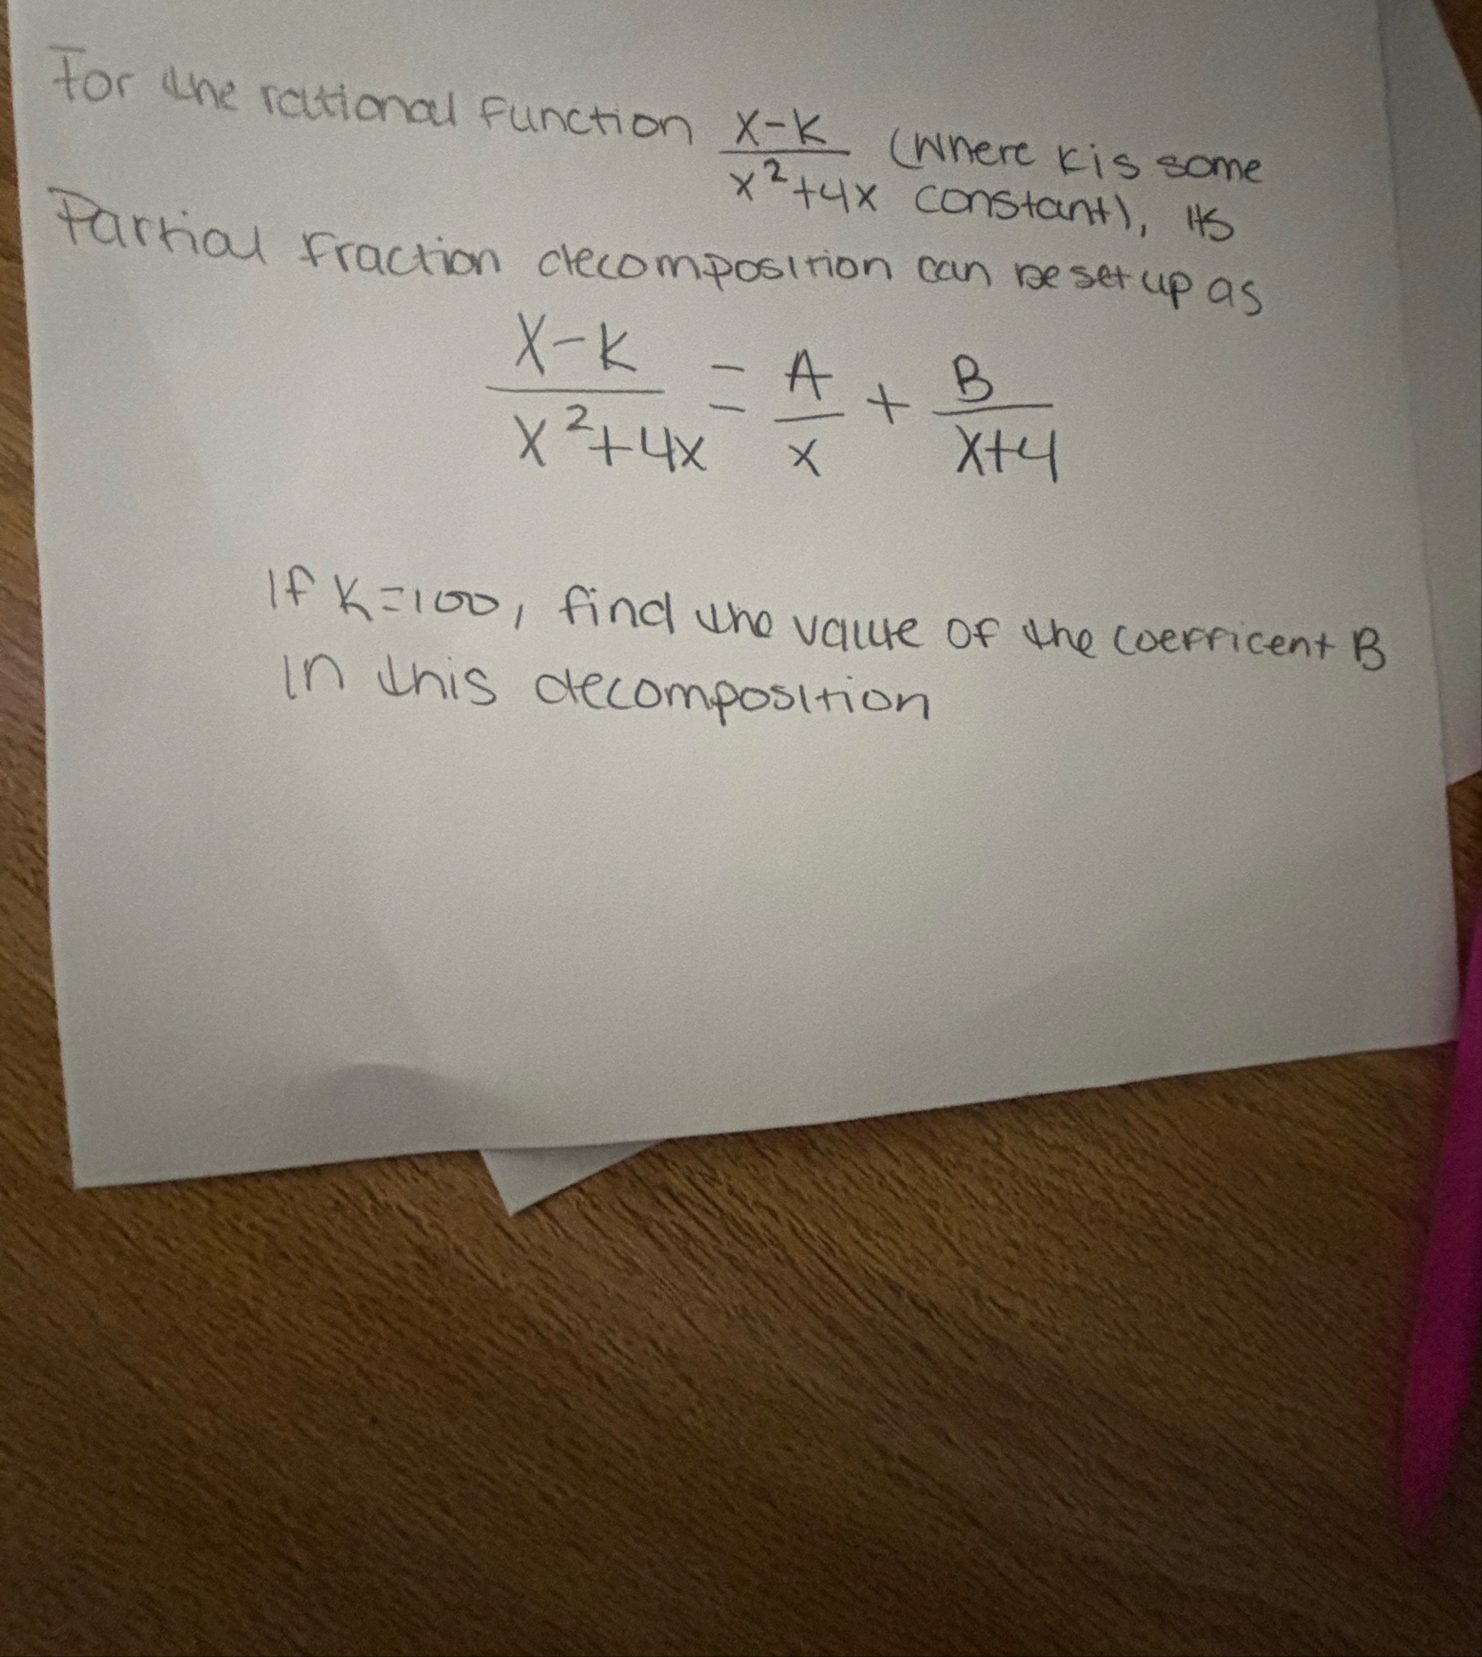 For the rational function x-k/x²+4x (where k is some
constant), its
Partial fraction decomposition can be set up as
x-k/x²+4x = A/x + B/x+4
If k=100, find the value of the coefficent B
in this decomposition